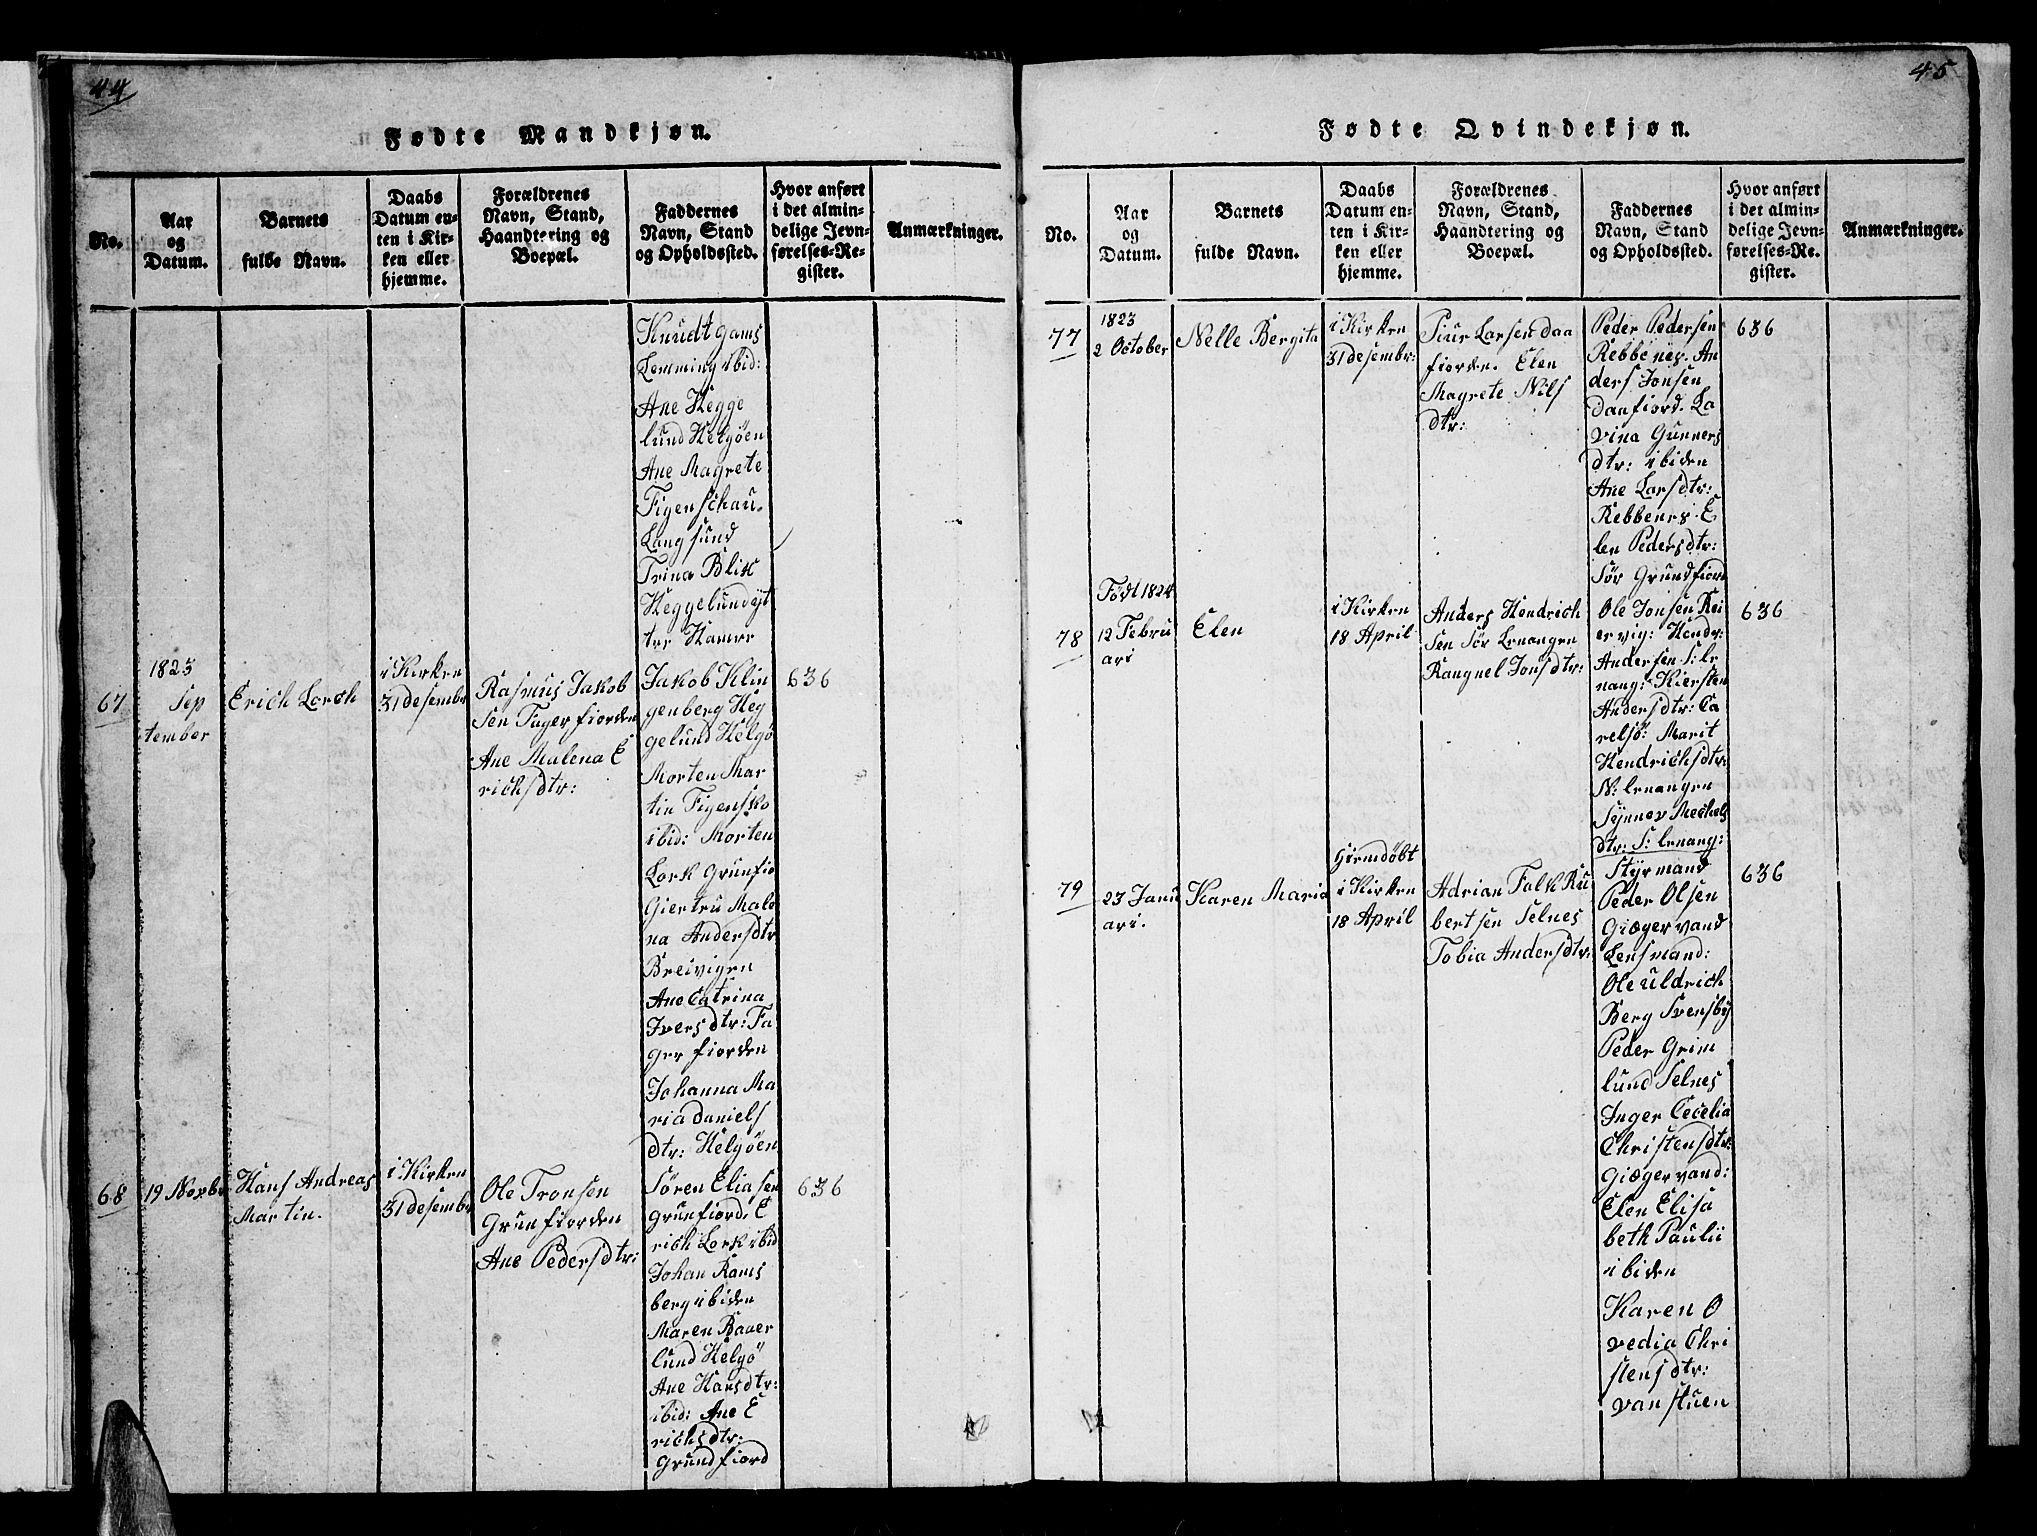 44
Fødte Mandkjøn.
No.
Aar
og
Datum.
Barnets
fulde Navn.
Daabs
Datum en-
ten i Kir-
ken eller
hjemme.
Forældrenes
Navn, Stand,
Haandtering og
Boepæl.
Faddernes
Navn, Stand
og Opholdssted.
Hvor anført
i det almin-
delige Jevn-
førelses-Re-
gister.
Anmærkninger.
Knudt Gams
Lemming ibid:
Ane Hegge
lund Helgøen
Ane Magrete
Figenschau.
Langsund
Trina Blix
Heggelundeyt
ter Hamre
67
1823
Sep
tember
Erich Lorch
i Kirken
31 desembr
Rasmus Jakob
sen Fagerfiorden
Ane Malena E
richsdtr:
Jakob Klin
genberg Heg
gelund Helgø
Morten Mar
tin Figensko
ibid: Morten
Lork Grunfio
Giertru Male
na Andersdtr
Breivigen
Ane Catrina
Iversdtr: Fa
gerfiorden
Johanna Ma
ria Daniels
dtr: Helgøen
636
68
19 Novbr
Hans Andreas
Martin.
i Kirken
31 desembr
Ole Tronsen
Grunfiorden
Ane Pedersdtr:
Søren Eliasen
grunfiord. E
rich Lork ibid
Johan Rams
berg ibiden
Maren Bauer
lund Helgø
Ane Hansdtr:
ibid: Ane E
richsdtr:
Grundfiord
636
45
Fødte Qvindekjøn.
No.
Aar
og
Datum.
Barnets
fulde Navn.
Daabs
Datum en-
ten i Kir-
ken eller
hjemme.
Forældrenes
Navn, Stand,
Haandtering og
Boepæl.
Faddernes
Navn, Stand
og Opholdssted.
Hvor anført
i det almin-
delige Jevn-
førelses-Re-
gister.
Anmærkninger.
77
1823
2 October
Nelle Bergita
i Kirken
31 desembr:
Siur Larsen daa
fiorden. Elen
Magrete Nils
dtr:
Peder Pedersen
Rebbenes. An
ders Jonsen
daafiord. La
vina Gunners
dtr: ibiden
Ane Larsdtr:
Rebbenes. E
len Pedersdtr:
Sør Grundfiord
636
78
Født 1824
12 Febru
ari
Elen
i Kirken
18 April
Anders Hendrich
sen Sør Lenangen
Rangnel Jonsdtr:
Ole Jonsen Rei
ervig: Hendr:
Andersen S: le
nang: Kiersten
Andersdtr: Ca
relsø: Marit
Hendrichsdtr:
N: lenangen
Synnev Mechels
dtr: S: lenang:
636
79
23 Janu
ari.
Karen Maria
Hiemdøbt
i Kirken
18 April
Adrian Falk Ru
bertsen Selnes
Tobia Andersdtr:
Styrmand
Peder Olsen
Giægervand
Lensmand:
Ole Uldrich
Berg Svensby
Peder Grim
lund Selnes
Inger Cecelia
Christensdtr:
Giægervand:
Elen Elisa
beth Paulii
ibiden
Karen O
vedia Chri
stensdtr:
vanstuen
636